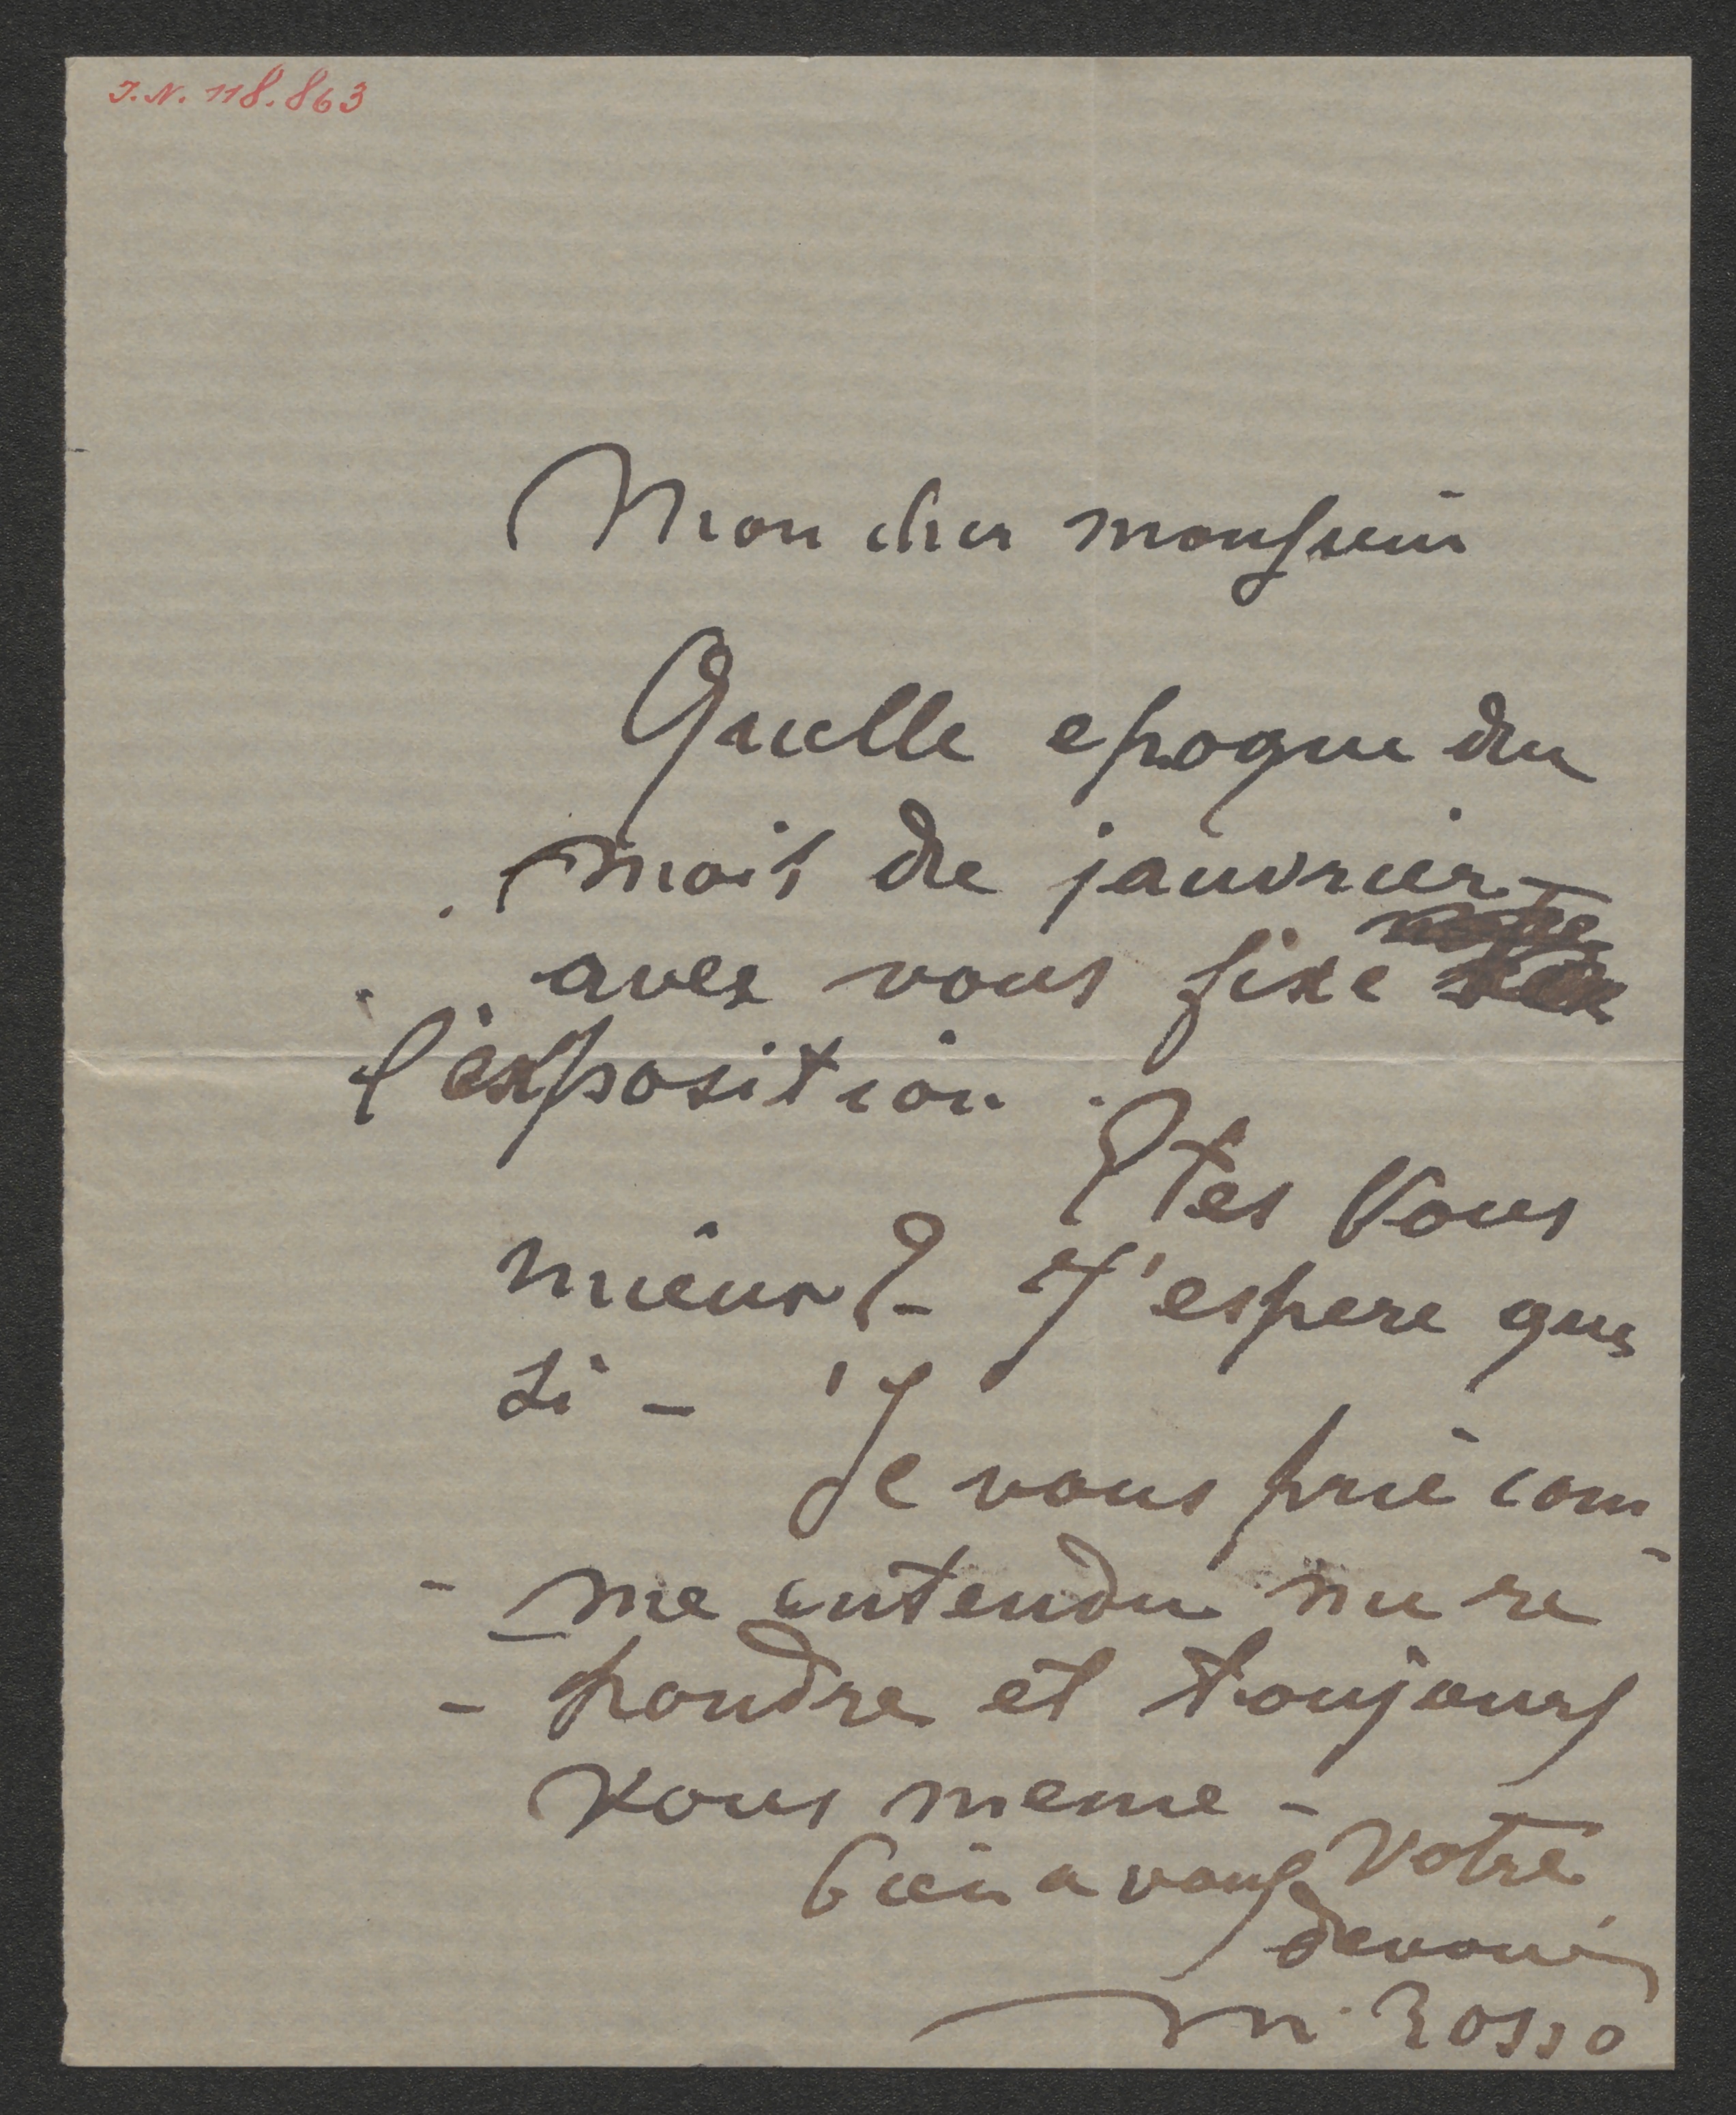 J.N. 118.863
Mon cher monsieur
Quelle epoque du
mois de janvrier
avez vous fixe
l'exposition.
Etes Vous
mieux? - J'espere que
si -
Je vous prie com
- me entendu me re
- pondre et toujours
vous meme -
bien a vous Votre
devoué
M. Rosso